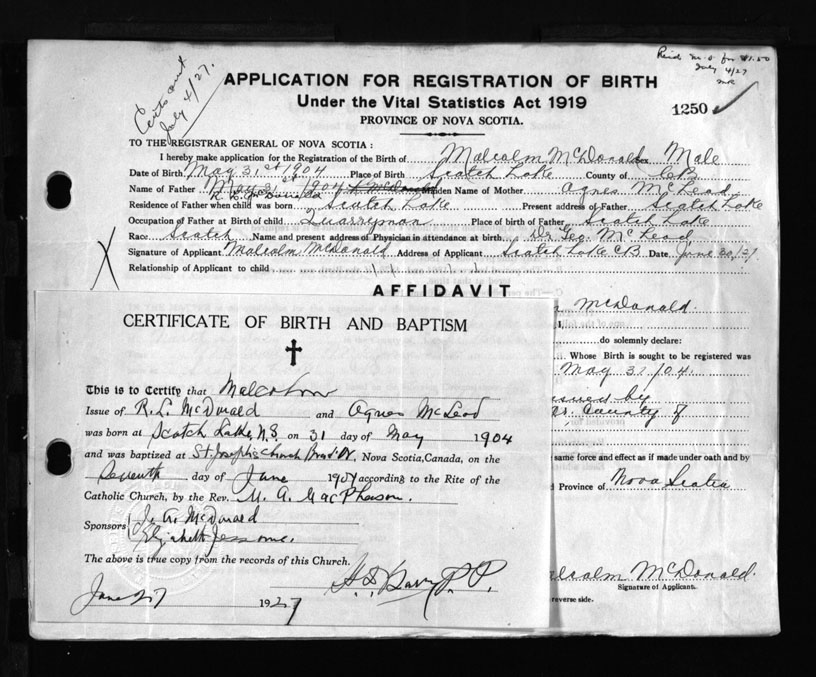 Certs out
July 4/27.
Paid m.o for $1.50
July 4/27
MR
APPLICATION FOR REGISTRATION OF BIRTH
Under the Vital Statistics Act 1919
1250
PROVINCE OF NOVA SCOTIA.
TO THE REGISTRAR GENERAL OF NOVA SCOTIA :
I hereby make application for the Registration of the Birth of Malcolm McDonald Sex Male
Date of Birth May 31st 1904 Place of Birth Scotch Lake County of CB
Name of Father May 31st 1904 R. L. McDonald Maiden Name of Mother Agnes McLeod
Residence of Father when child was born Scotch Lake Present address of Father Scotch Lake
Occupation of Father at Birth of child Quarryman Place of birth of Father Scotch Lake
Race Scotch Name and present address of Physician in attendance at birth Dr Geo. McLeod
Signature of Applicant Malcolm McDonald Address of Applicant Scotch Lake CB Date June 30/27
Relationship of Applicant to child
X
AFFIDAVIT
McDonald
do solemnly declare:
Whose Birth is sought to be registered was
May 31/04.
issued by
County of
same force and effect as if made under oath and by
Province of Nova Scotia
Malcolm McDonald.
Signature of Applicant.
reverse side.
CERTIFICATE OF BIRTH AND BAPTISM
This is to Certify that Malcolm
Issue of R. L. McDonald and Agnes McLeod
was born at Scotch Lake, N.S on 31 day of May 1904
and was baptized at St. Joseph's Church, Nova Scotia, Canada, on the
Seventh day of June 1904 according to the Rite of the
Catholic Church, by the Rev. M. A. MacPherson.
Sponsors J. A. McDonald
Elizabeth Jessome.
The above is true copy from the records of this Church.
P. P.
June 27 1927